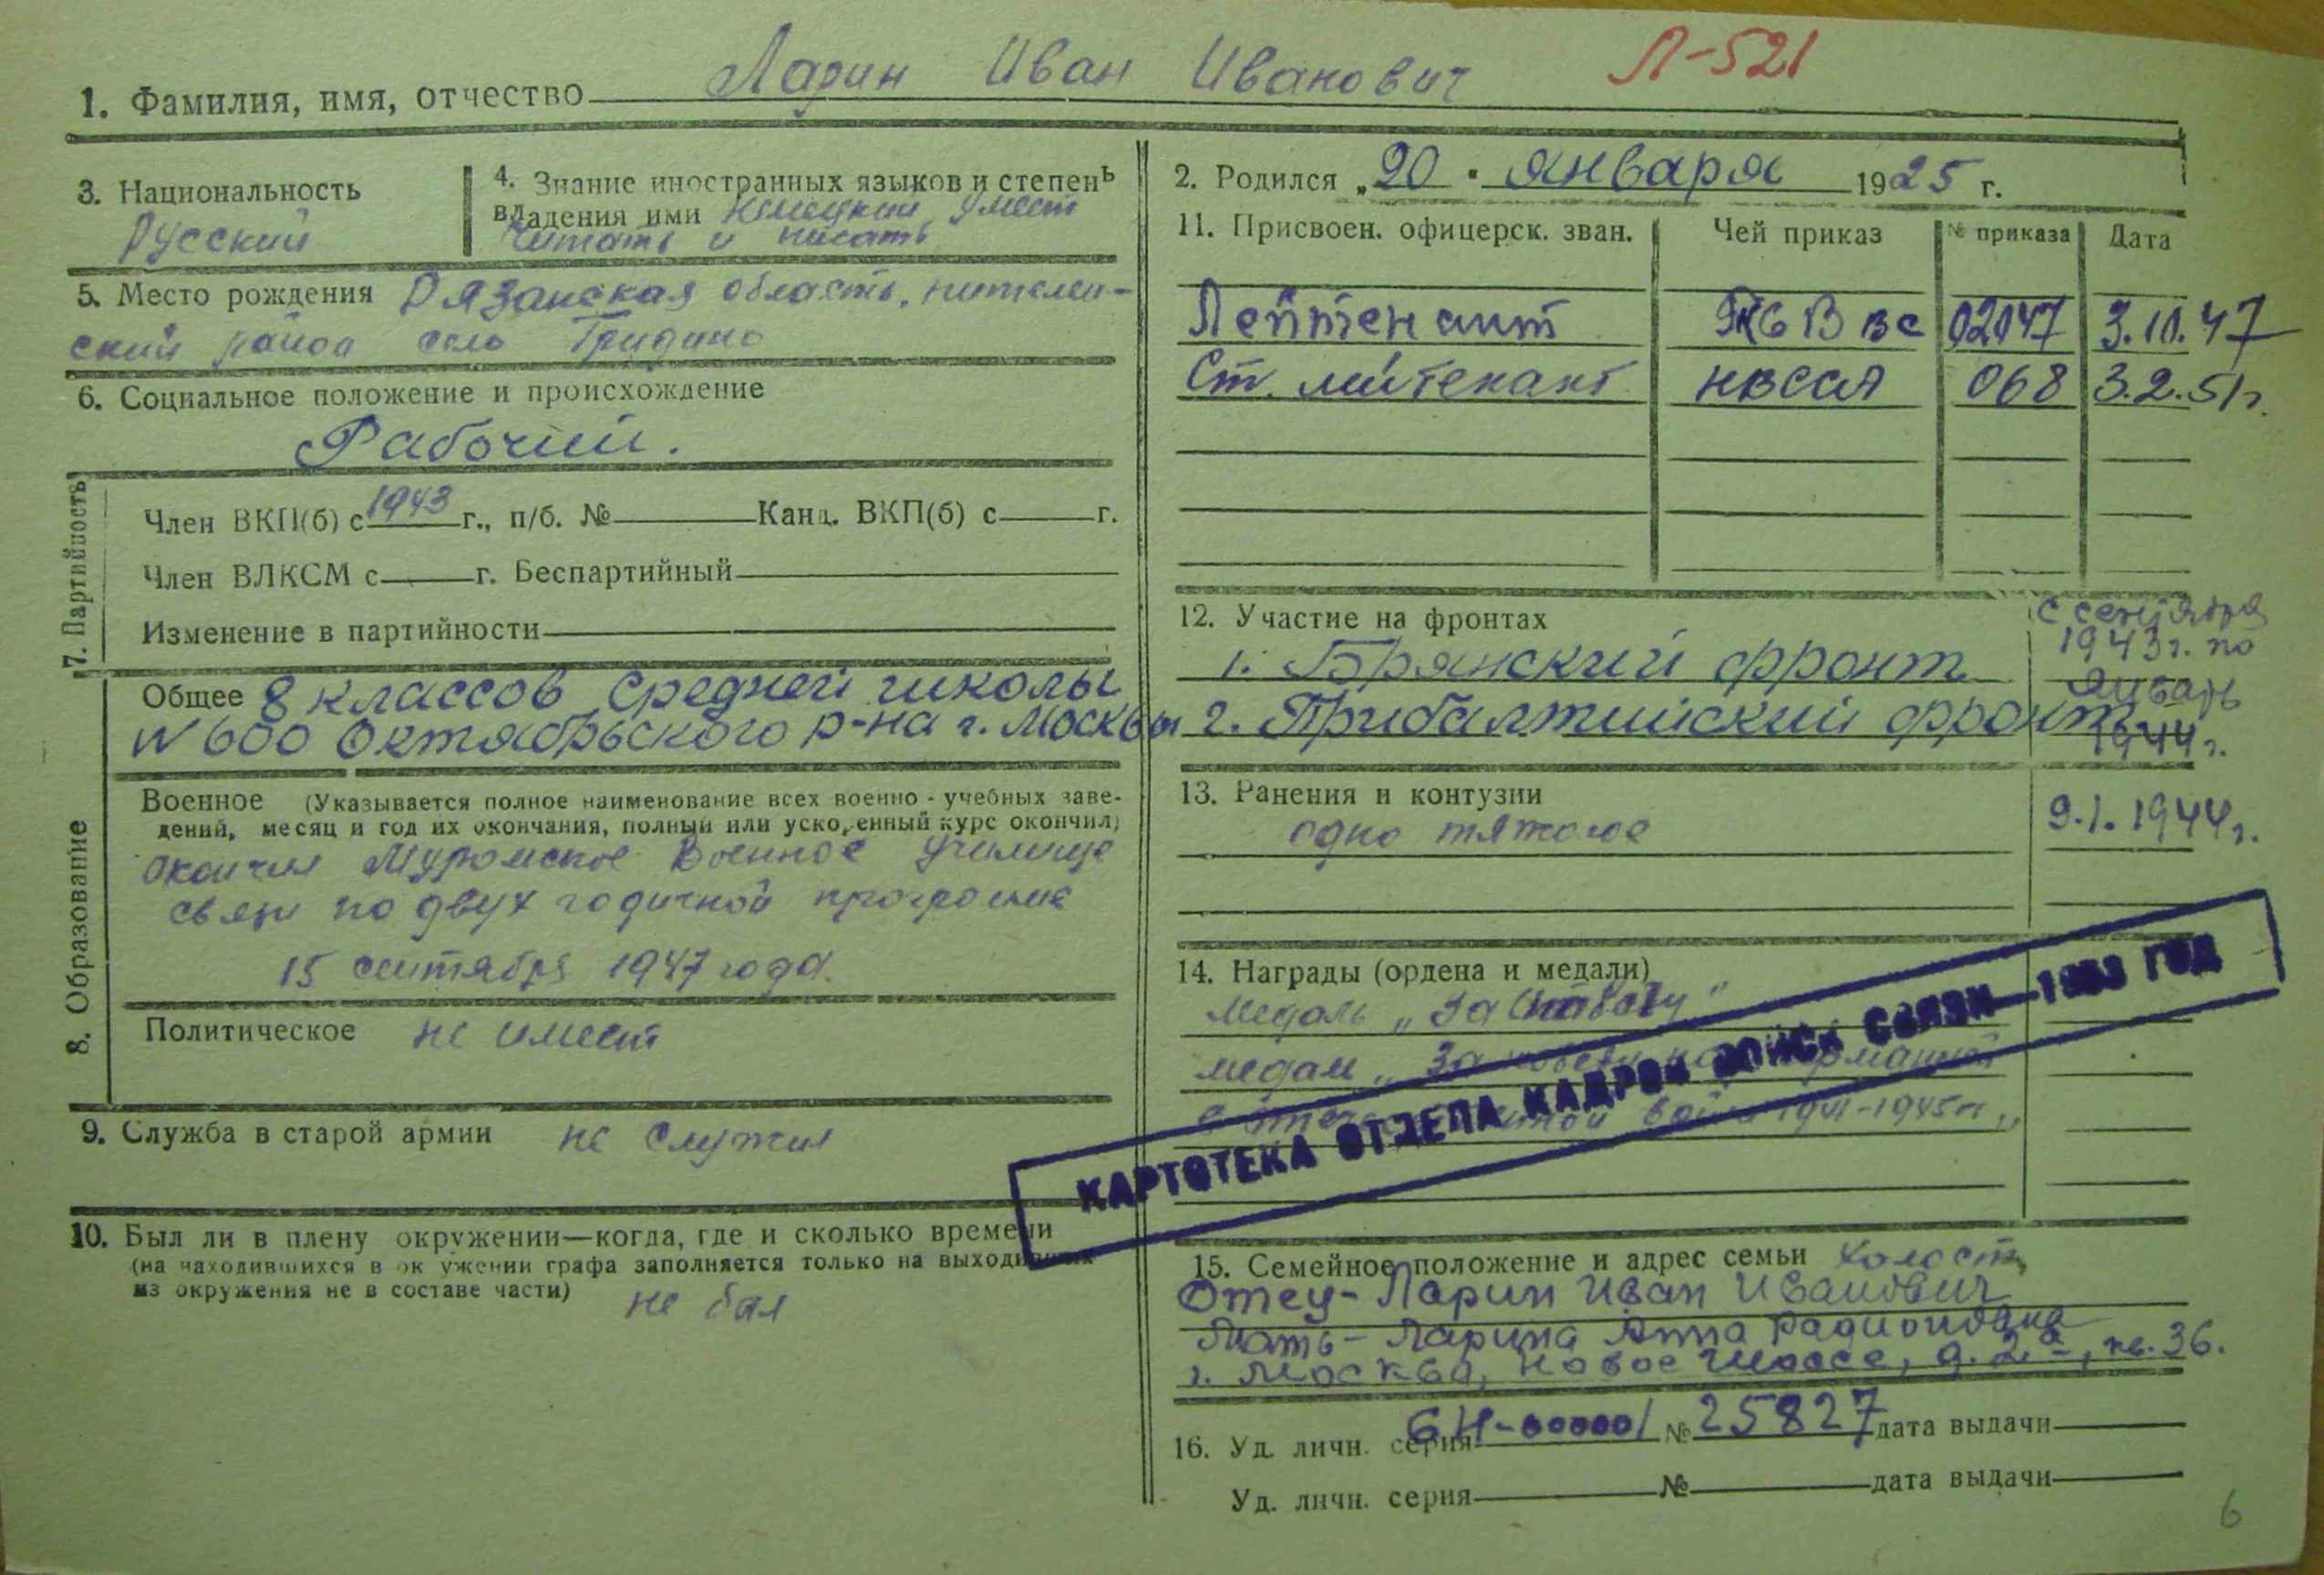 Л-521
1. Фамилия, имя, отчество Ларин Иван Иванович
3. Национальность
Русский
4. Знание иностранных языков и степень
владения ими Немецкий умеет
читать и писать
5. Место рождения Рязанская область,
ский район село Гридино
6. Социальное положение и происхождение
Рабочий.
7. Партийность
Член ВКП(б) с 1943 г., п/б. № Канд. ВКП(б) с г.
Член ВЛКСМ с г. Беспартийный
Изменение в партийности
8. Образование
Общее 8 классов средней школы
№ 600 Октябрьского р-на г. Москвы
Военное (Указывается полное наименование всех военно-учебных заве-
дений, месяц и год их окончания, полный или ускоренный курс окончил)
окончил Муромское Военное училище
связи по двух годичной программе
15 сентября 1947 года.
Политическое не имеет
9. Служба в старой армии не служил
10. Был ли в плену окружении—когда, где и сколько времени
(на находившихся в окружении графа заполняется только на выходивших
из окружения не в составе части)
не был
2. Родился „20" января 1925 г.
11. Присвоен. офицерск. зван. Чей приказ № приказа Дата
Лейтенант ВВС 02047 3.10.47
Ст. лейтенант НВССА 068 3.2.51г.
12. Участие на фронтах
1. Брянский фронт
2. Прибалтийский фронт
с сентября
1943г. по
январь
1944г.
13. Ранения и контузии
одно тяжолое 9.1.1944г.
14. Награды (ордена и медали)
медаль „За Отвагу"
медаль „За победу над Германией
в отечественной войне 1941-1945гг"
КАРТОТЕКА ОТДЕЛА КАДРОВ ВОЙСК СВЯЗИ—1953 ГОД
15. Семейное положение и адрес семьи Холост,
Отец- Ларин Иван Иванович
Мать- Ларина Анна Радионовна
г. Москва, Новое шоссе, д. 2а, кв. 36.
16. Уд. личн. серия БН-00000/ № 25827 дата выдачи
Уд. личн. серия № дата выдачи
6